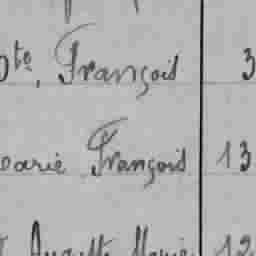 te, François 3
arie François 13
Auguste Marie 12